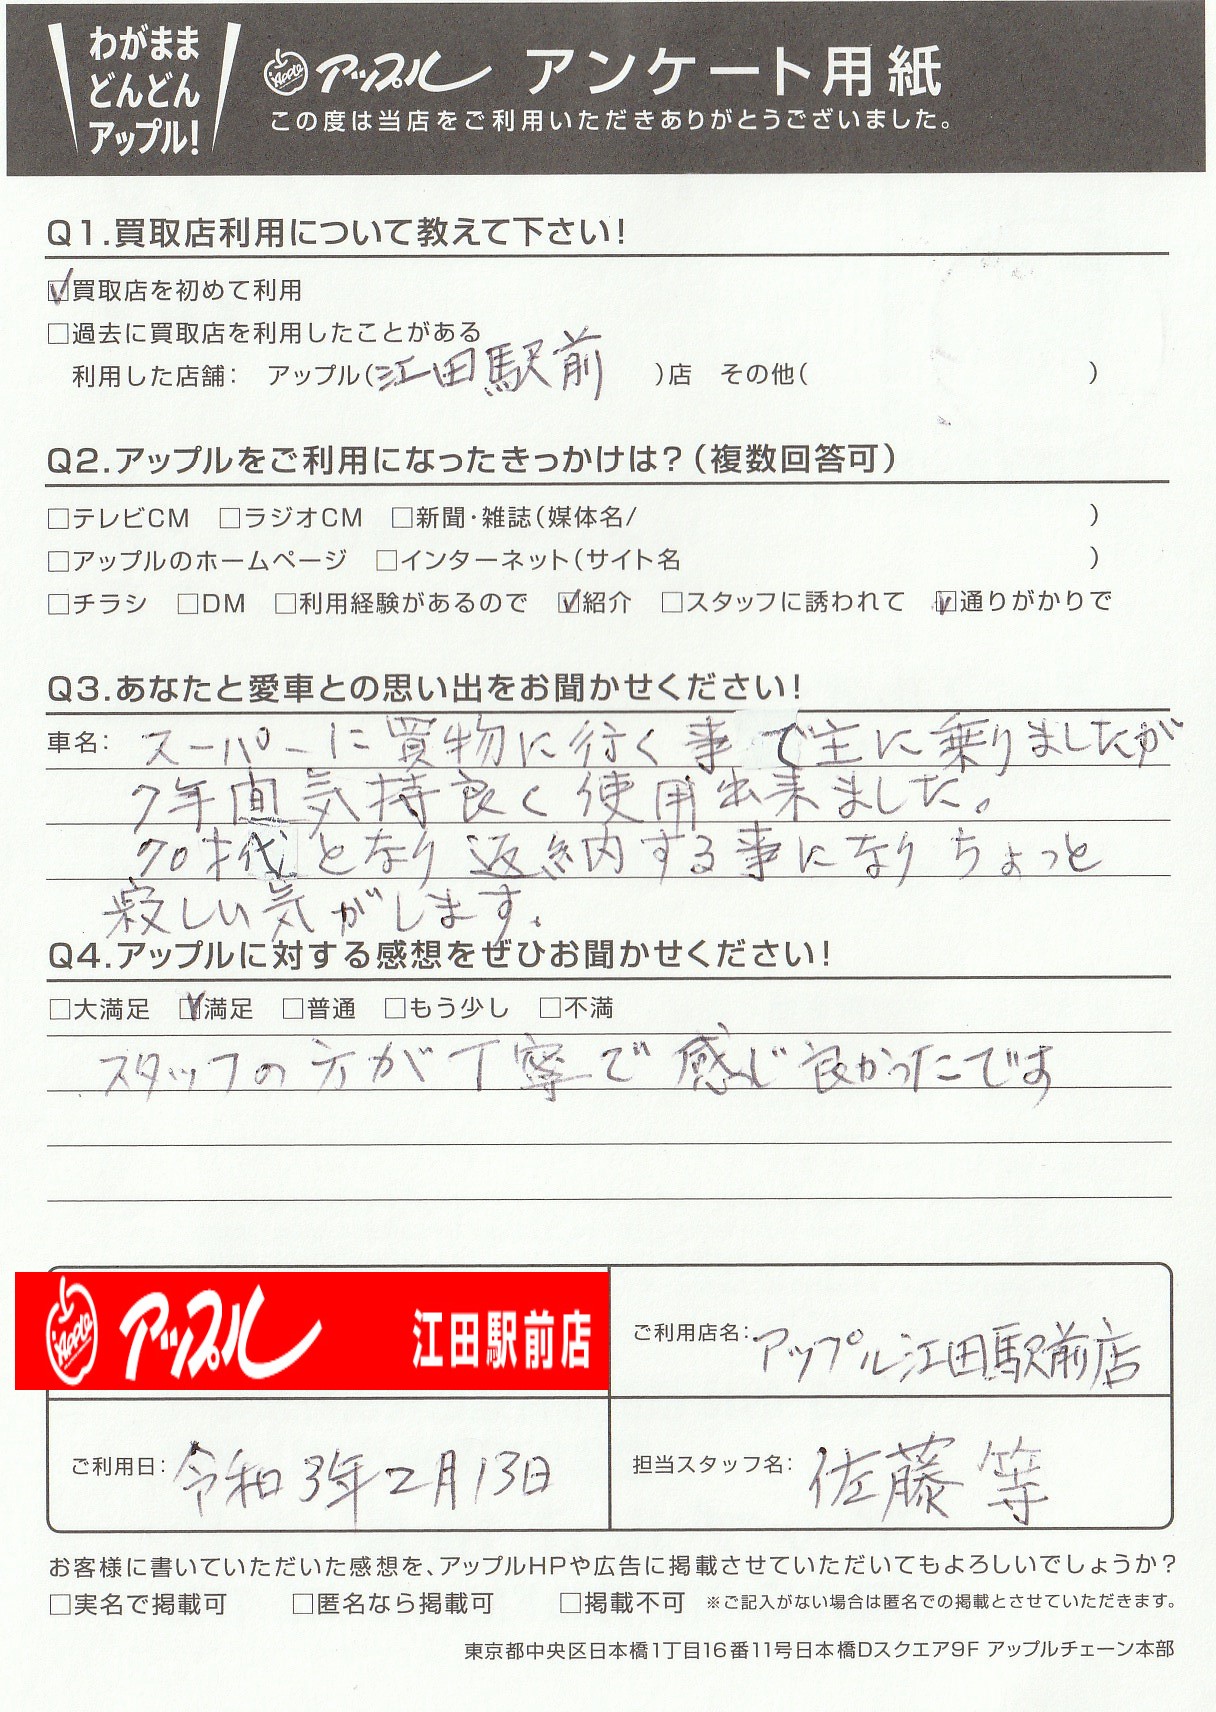 わがまま
どんどん
アップル!
Apple アップル アンケート用紙
この度は当店をご利用いただきありがとうございました。
Q1.買取店利用について教えて下さい!
買取店を初めて利用
□過去に買取店を利用したことがある
利用した店舗: アップル(江田駅前 )店 その他( )
Q2.アップルをご利用になったきっかけは?(複数回答可)
□テレビCM □ラジオCM □新聞・雑誌(媒体名/ )
□アップルのホームページ □インターネット(サイト名 )
□チラシ □DM □利用経験があるので ☑紹介 □スタッフに誘われて ☑通りがかりで
Q3.あなたと愛車との思い出をお聞かせください!
車名: スーパーに買物に行く事で主に乗りましたが
7年間気持良く使用出来ました。
70才代となり返納する事になりちょっと
寂しい気がします。
Q4.アップルに対する感想をぜひお聞かせください!
□大満足 ☑満足 □普通 □もう少し □不満
スタッフの方が丁寧で感じ良かったです
Apple アップル 江田駅前店
ご利用店名: アップル江田駅前店
ご利用日: 令和3年2月13日
担当スタッフ名: 佐藤等
お客様に書いていただいた感想を、アップルHPや広告に掲載させていただいてもよろしいでしょうか?
□実名で掲載可 □匿名なら掲載可 □掲載不可 ※ご記入がない場合は匿名での掲載とさせていただきます。
東京都中央区日本橋1丁目16番11号日本橋Dスクエア9F アップルチェーン本部